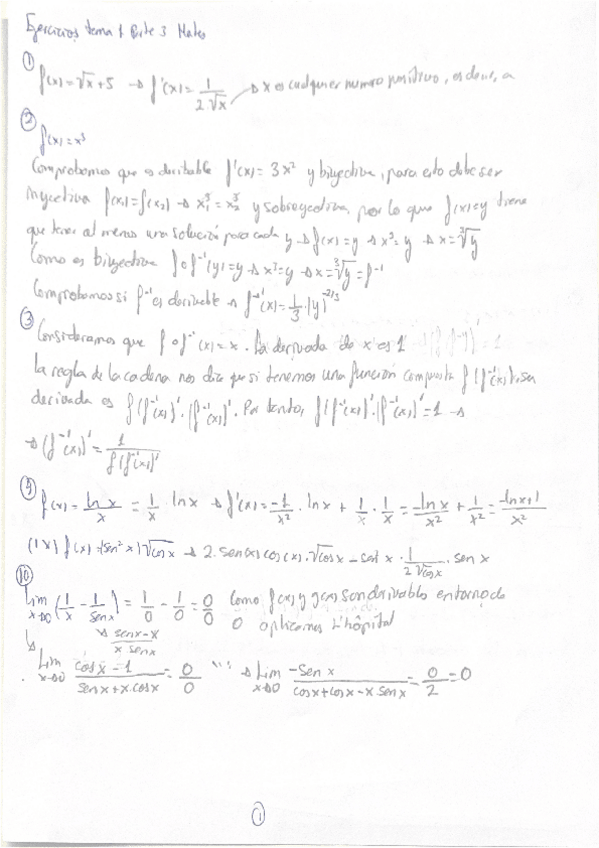 Ejercicios tema 1 Parte 3 Mates
① f(x)=√x+5 → f'(x)= 1/(2·√x) → x es cualquier numero positivo, es decir, a
② f(x)=x³
Comprobamos que es derivable f'(x)=3x² y biyectiva, para esto debe ser
inyectiva f(x₁)=f(x₂) → x₁³=x₂³ y sobreyectiva, por lo que f(x)=y tiene
que tener al menos una solución para cada y → f(x)=y → x³=y → x=∛y
Como es biyectiva f∘f⁻¹(y)=y → x³=y → x=∛y=f⁻¹
Comprobamos si f⁻¹ es derivable → f⁻¹'(x)=1/3·(y)^(-2/3)
③ Consideramos que f∘f⁻¹(x)=x. La derivada de x es 1
La regla de la cadena nos dice que si tenemos una función compuesta f(f⁻¹(x)), su
derivada es f(f⁻¹(x))'·(f⁻¹(x))'. Por tanto, f(f⁻¹(x))'·(f⁻¹(x))'=1 →
→ (f⁻¹(x))'= 1/f(f⁻¹(x))'
f(x)= ln x/x = 1/x · ln x → f'(x)= -1/x² · ln x + 1/x · 1/x = -ln x/x² + 1/x² = (-ln x+1)/x²
f(x)=(sen²x)√cosx → 2·sen(x)cos(x)·√cosx - sen²x · 1/(2√cosx) · sen x
⑩ Lim x→0 (1/x - 1/senx) = 1/0 - 1/0 = 0/0 Como f(x) y g(x) son derivables entorno de
0 aplicamos L'hôpital
→ (senx-x)/(x senx)
Lim x→0 (cosx-1)/(senx+x·cosx) = 0/0 → Lim x→0 (-sen x)/(cosx+cosx-x senx) = 0/2 = 0
①